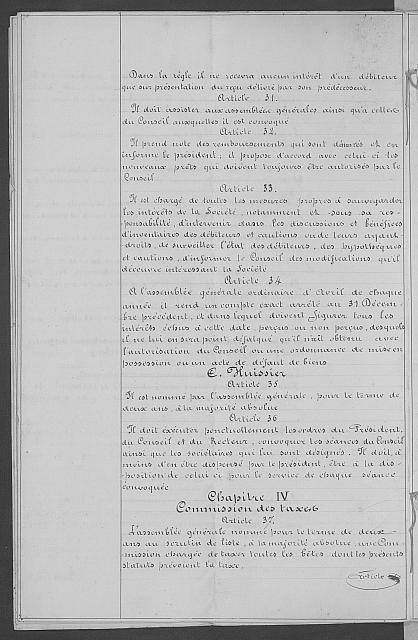 Dans la règle il ne recevra aucun intérêt d'un débiteur
que sur présentation du reçu délivré par son prédécesseur.
Article 31.
Il doit assister aux assemblées générales ainsi qu'à celles
du Conseil auxquelles il est convoqué
Article 32.
Il prend note des remboursements qui sont dénoncés et en
informe le président; il propose d'accord avec celui ci les
nouveaux prêts qui doivent toujours être autorisés par le
Conseil
Article 33.
Il est chargé de toutes les mesures propres à sauvegarder
les intérêts de la Société, notamment et sous sa res-
ponsabilité, d'intervenir dans les discussions et bénéfices
d'inventaires des débiteurs et cautions ou de leurs ayant-
droits, de surveiller l'état des débiteurs, des hypothèques
et cautions, d'informer le Conseil des modifications qu'il
découvre intéressant la Société
Article 34
A l'assemblée générale ordinaire d'Avril de chaque
année il rend un compte exact arrêté au 31 Décem-
bre précédent, et dans lequel doivent figurer tous les
intérêts échus à cette date, perçus ou non perçus, desquels
il ne lui en sera point défalqué qu'il n'ait obtenu avec
l'autorisation du Conseil ou une ordonnance de mise en
possession ou un acte de défaut de biens
E. Huissier
Article 35
Il est nommé par l'assemblée générale, pour le terme de
deux ans, à la majorité absolue
Article 36
Il doit exécuter ponctuellement les ordres du Président,
du Conseil et du Recteur, convoquer les séances du Conseil
ainsi que les sociétaires qui lui sont désignés. Il doit, à
moins d'en être dispensé par le président, être à la dis-
position de celui ci pour le service de chaque séance
convoquée
Chapitre IV
Commission des taxes
Article 37.
L'assemblée générale nomme pour le terme de deux
ans au scrutin de liste, à la majorité absolue, une Com-
mission chargée de taxer toutes les bêtes dont les présents
statuts prévoient la taxe.
Article